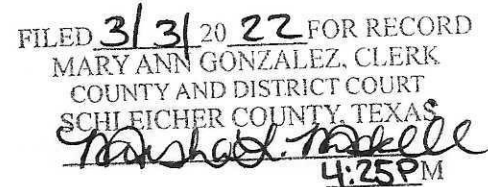 FILED 3/3/ 20 22 FOR RECORD
MARY ANN GONZALEZ, CLERK
COUNTY AND DISTRICT COURT
SCHLEICHER COUNTY, TEXAS
4:25PM